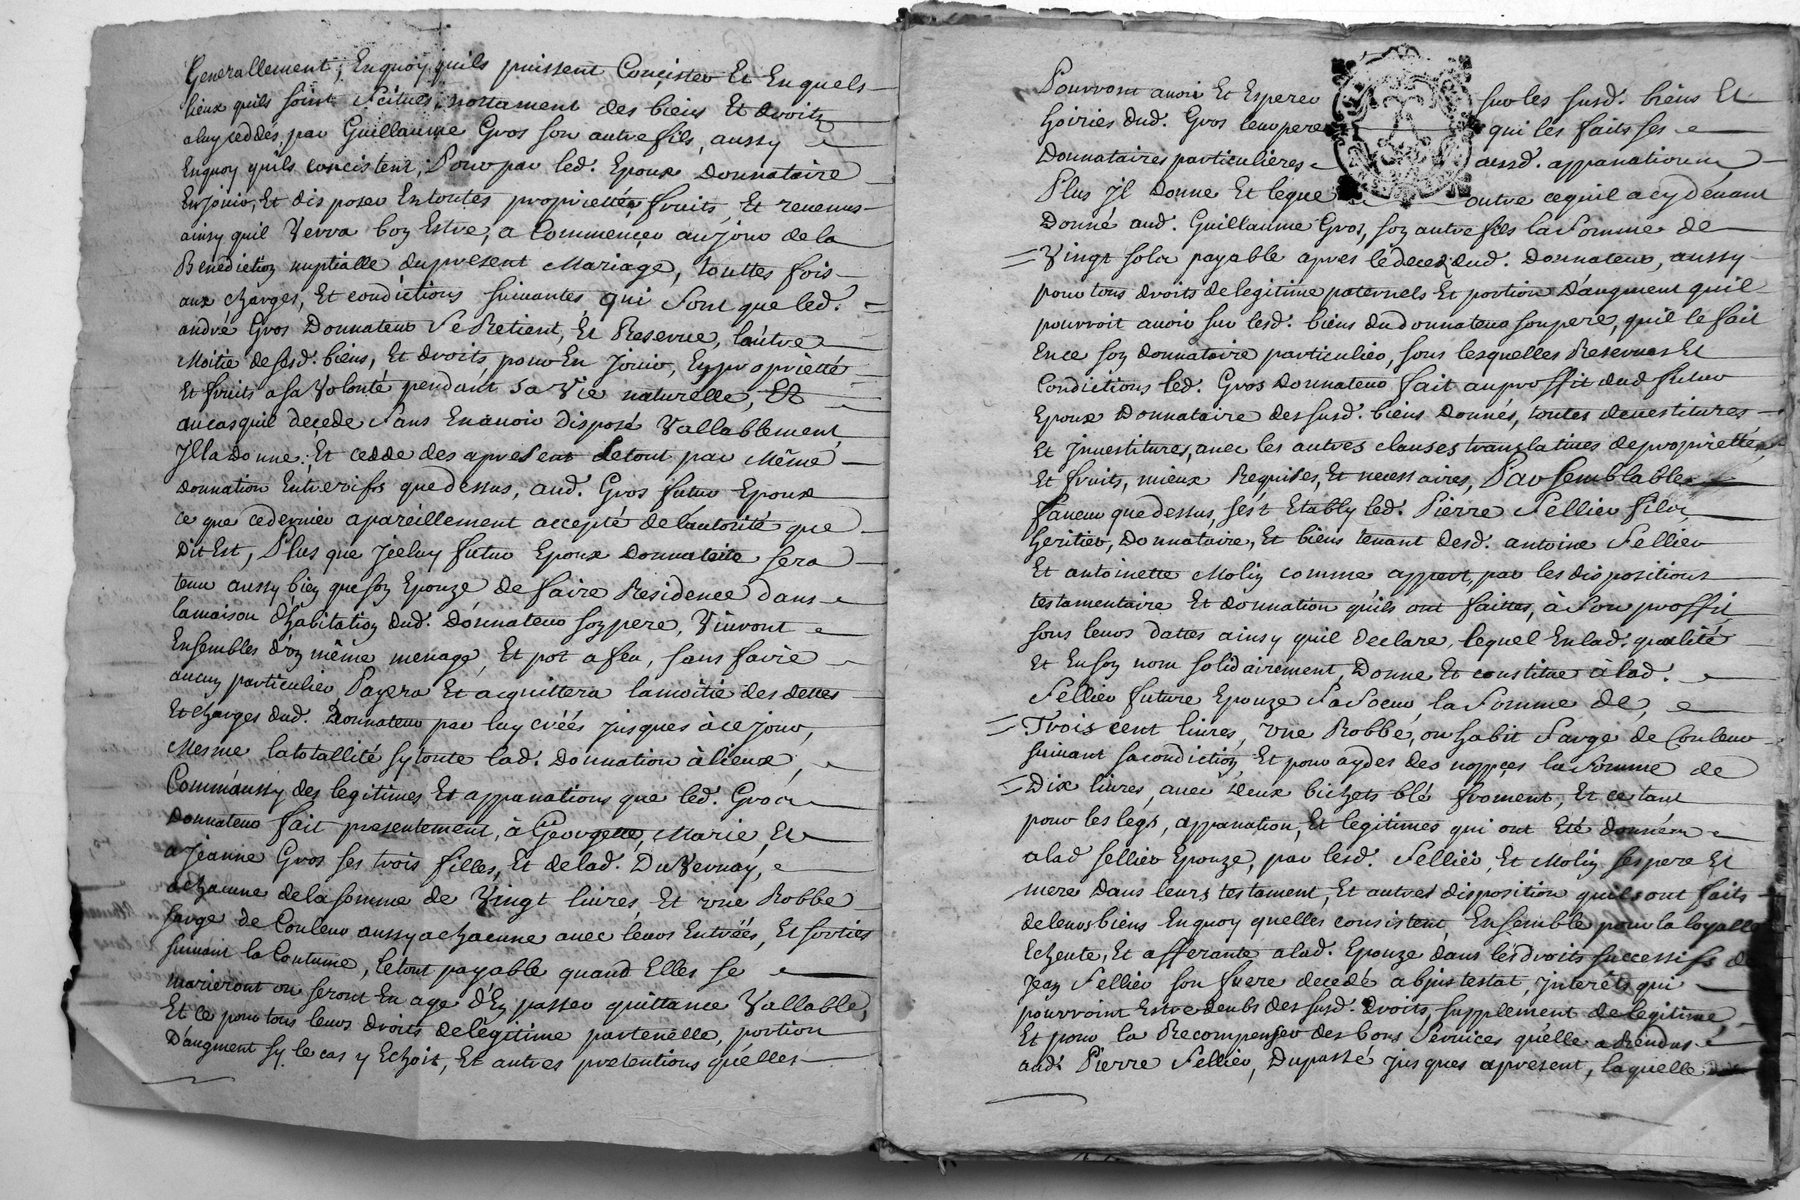 Generallement, Enquoy quils puissent Concister Et Enquels
lieux quils soint scitues, nottament des biens Et droits
a luy ceddés, par Guillaume Gros son autre fils, aussy
Enquoy quils concistent, Pour par led. Epoux Donnataire
En jouir, Et disposer En toutes proprietés, fruits, Et revenus
ainsy quil Verra bon Estre, a Commencer au jour de la
Benediction nuptialle du present Mariage, touttes fois
aux charges, Et condictions suivantes, qui sont que led.
andré Gros Donnateur se Retient, Et Reserve, l'autre
Moitié de sesd. biens, Et droits, pour En Jouir, En proprietté
Et fruits a sa Volonté pendant sa Vie naturelle, Et
au cas quil decede sans En avoir disposé Vallablement,
Il la Donne, Et cedde des apresent le tout par Même
donnation Entre vifs que dessus, aud. Gros futur Epoux
ce que ce dernier a pareillement accepté de lautorité que
dit Est, Plus que Jceluy futur Epoux Donnataire sera
tenu aussy bien que son Epouze de faire Residence dans
la maison d'habitation dud. Donnateur son pere, Vivront
Ensembles d'un même menage, Et pot a feu, sans faire
aucun particulier Payera Et acquittera la moitié des dettes
Et charges dud. Donnateur par luy créés jusques à ce jour,
Mesme la totallité sy toute lad. Donnation à lieux,
Comm'aussy des legitimes Et appanations que led. Gros
Donnateur fait presentement, à Georgette, Marie, Et
a Jeanne Gros ses trois filles, Et de lad. DuVernay,
a chacune de la somme de Vingt livres, Et une Robbe
sarge de Couleur aussy a chacune avec leurs Entrées, Et sorties
suivant la Coutume, le tout payable quand Elles se
marieront ou seront En age d'En passer quittance Vallable,
Et ce pour tous leurs droits de legitime parternelle, portion
D'augment sy le cas y Echoit, Et autres pretentions qu'elles
Pourront avoir Et Esperer sur les susd. biens Et
hoiries dud. Gros leur pere qui les faits ses
Donnataires particulieres aud. appanation
Plus Jl Donne Et legue outre ce quil a cy devant
Donné aud. Guillaume Gros, son autre fils la somme de
Vingt sols payable apres le deced dud. Donnateur, aussy
pour tous droits de legitime paternels Et portion D'augment qu'il
pourroit avoir sur lesd. biens du donnateur son pere, quil le fait
En ce son donnataire particulier, sous lesquelles Reserves Et
Condictions led. Gros Donnateur fait au proffit dud futur
Epoux Donnataire des susd. biens Donnés, toutes devestitures
Et Jnvestitures, avec les autres clauses translatives de proprietté,
Et fruits, mieux Requises, Et necessaires, Par semblable
faveur que dessus, s'est Etably led. Pierre Sellier fils
heritier, Donnataire, Et biens tenant desd. antoine Sellier
Et antoinette Molin comme appert, par les dispositions
testamentaire Et donnation qu'ils ont faittes, à son proffit,
sous leurs dattes ainsy quil declare, lequel En lad. qualité
Et En son nom solidairement, Donne Et constitue à lad.
Sellier future Epouze sa soeur, la somme de,
Trois cent livres, une Robbe, ou habit sarge de Couleur
suivant sa condiction, Et pour ayder des noppces la somme de
Dix livres, avec deux bichets blé froment, Et ce tant
pour les legs, appanation, Et legitimes qui ont Eté données
a lad Sellier Epouze, par lesd. Sellier, Et Molin ses pere Et
mere Dans leurs testament, Et autres disposition quils ont faits
de leurs biens En quoy quelles consistent, Ensemble pour la loyalle
Echeute, Et afferante a lad. Epouze dans les droits successifs de
Jean Sellier son frere decedé abjntestat, jnterêts qui
pourroint Estre deubs des susd. Droits, supplement de legitime,
Et pour la Recompenser des bons Services qu'elle a Rendus
aud. Pierre Sellier, Du passé jusques apresent, laquelle